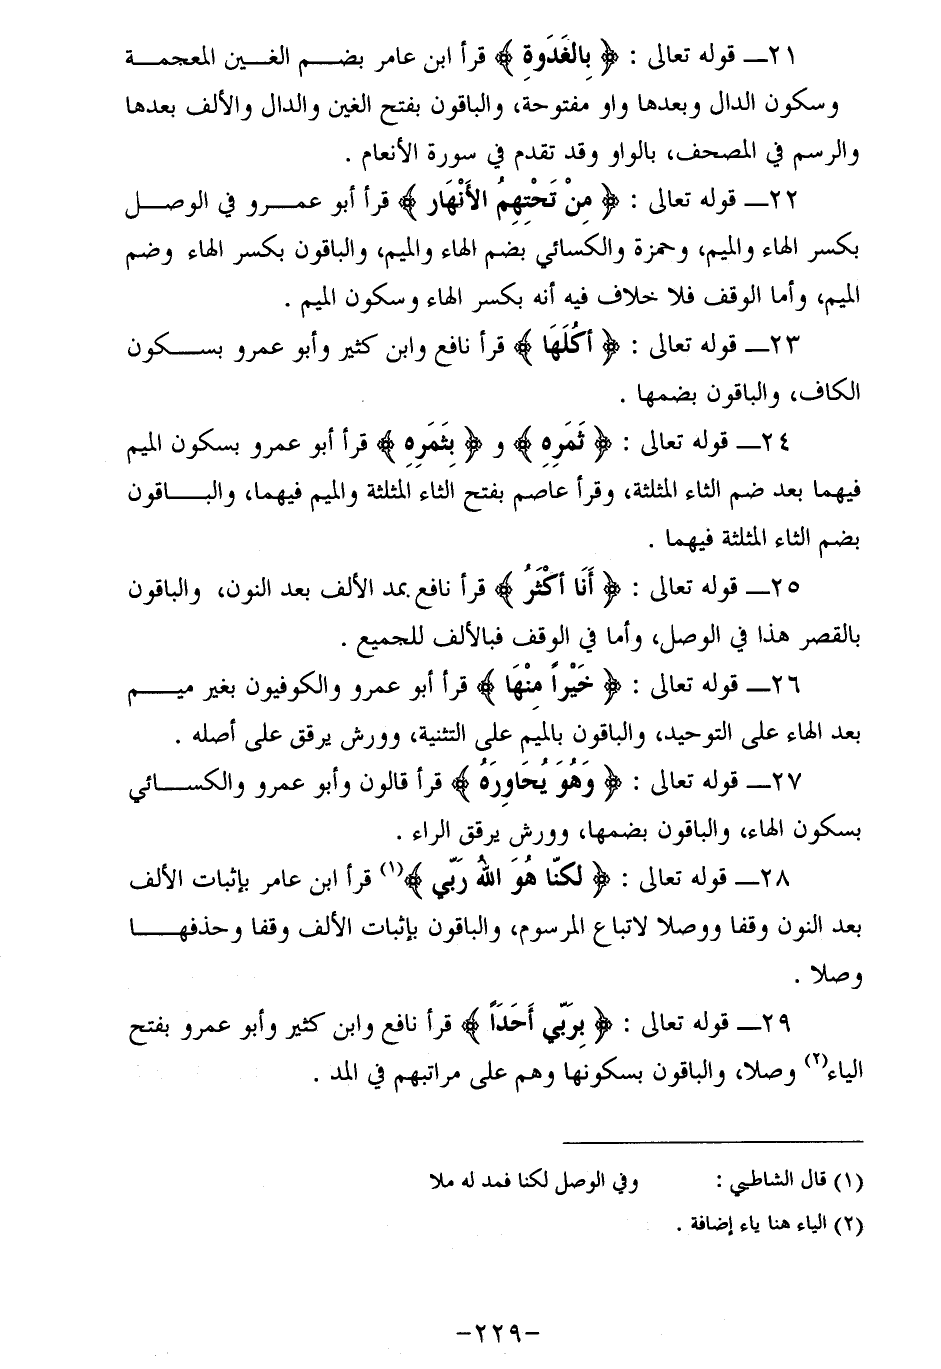 ٢١ــ قوله تعالى : ﴿ بِالغَدَوةِ ﴾ قرأ ابن عامر بضـــم الغـــين المعجمـــة
وسكون الدال وبعدها واو مفتوحة، والباقون بفتح الغين والدال والألف بعدها
والرسم في المصحف، بالواو وقد تقدم في سورة الأنعام .
٢٢ــ قوله تعالى : ﴿ مِنْ تَحْتِهِمُ الأَنْهَار ﴾ قرأ أبو عمـــرو في الوصـــل
بكسر الهاء والميم، وحمزة والكسائي بضم الهاء والميم، والباقون بكسر الهاء وضم
الميم، وأما الوقف فلا خلاف فيه أنه بكسر الهاء وسكون الميم .
٢٣ــ قوله تعالى : ﴿ أكُلَهَا ﴾ قرأ نافع وابن كثير وأبو عمرو بســـكون
الكاف، والباقون بضمها .
٢٤ــ قوله تعالى : ﴿ ثَمَرِهِ ﴾ و ﴿ بِثَمَرِهِ ﴾ قرأ أبو عمرو بسكون الميم
فيهما بعد ضم الثاء المثلثة، وقرأ عاصم بفتح الثاء المثلثة والميم فيهما، والبـــاقون
بضم الثاء المثلثة فيهما .
٢٥ــ قوله تعالى : ﴿ أَنَا أكْثَرُ ﴾ قرأ نافع بمد الألف بعد النون، والباقون
بالقصر هذا في الوصل، وأما في الوقف فبالألف للجميع .
٢٦ــ قوله تعالى : ﴿ خَيْراً مِنْهَا ﴾ قرأ أبو عمرو والكوفيون بغير ميـــم
بعد الهاء على التوحيد، والباقون بالميم على التثنية، وورش يرقق على أصله .
٢٧ــ قوله تعالى : ﴿ وَهُوَ يُحَاوِرَهُ ﴾ قرأ قالون وأبو عمرو والكســـائي
بسكون الهاء، والباقون بضمها، وورش يرقق الراء .
٢٨ــ قوله تعالى : ﴿ لكنَّا هُوَ اللهُ رَبّي ﴾(١) قرأ ابن عامر بإثبات الألف
بعد النون وقفا ووصلا لاتباع المرسوم، والباقون بإثبات الألف وقفا وحذفهـــا
وصلا .
٢٩ــ قوله تعالى : ﴿ بِرَبّي أَحَدَاً ﴾ قرأ نافع وابن كثير وأبو عمرو بفتح
الياء(٢) وصلا، والباقون بسكونها وهم على مراتبهم في المد .
(١) قال الشاطبي : وفي الوصل لكنا فمد له ملا
(٢) الياء هنا ياء إضافة .
-٢٢٩-